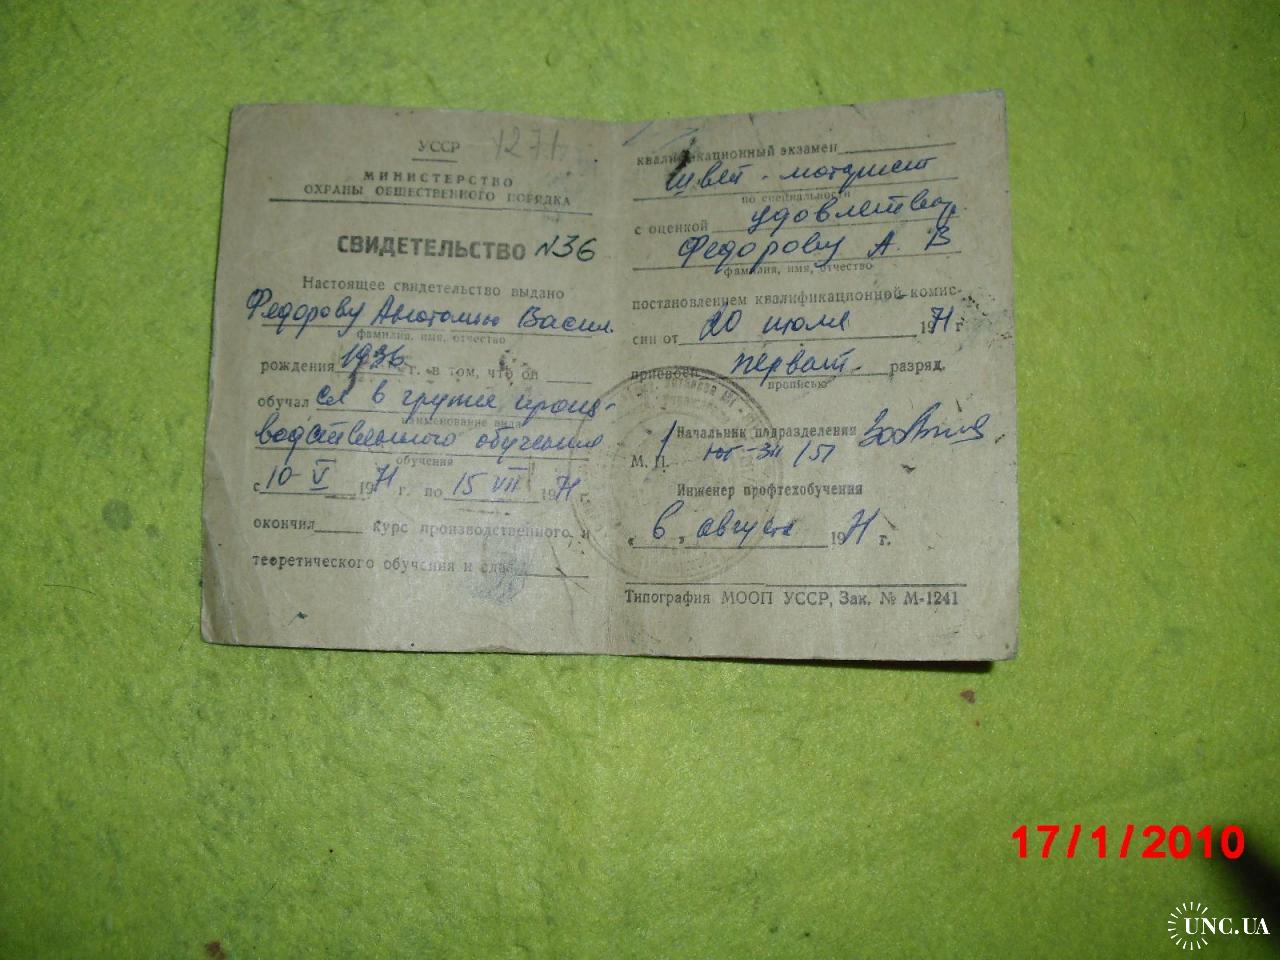 УССР
МИНИСТЕРСТВО
ОХРАНЫ ОБЩЕСТВЕННОГО ПОРЯДКА
СВИДЕТЕЛЬСТВО N36
Настоящее свидетельство выдано
Федорову Анатолию Васил.
фамилия, имя, отчество
рождения 1936 г. в том, что он
обучался в группе произ-
наименование вида
водственного обучения
обучения
с 10 V 1971 г. по 15 VII 1971 г.
окончил курс производственного и
теоретического обучения и сдал
квалификационный экзамен
швей-моторист
по специальности
с оценкой удовлетвор.
Федорову А. В
фамилия, имя, отчество
постановлением квалификационной комис-
сии от 20 июля 1971 г
присвоен первый разряд.
прописью
Начальник подразделения
М. П. ЮГ-311/51
Инженер профтехобучения
« 6 » августа 1971 г.
Типография МООП УССР, Зак. № М-1241
17/1/2010
UNC.UA